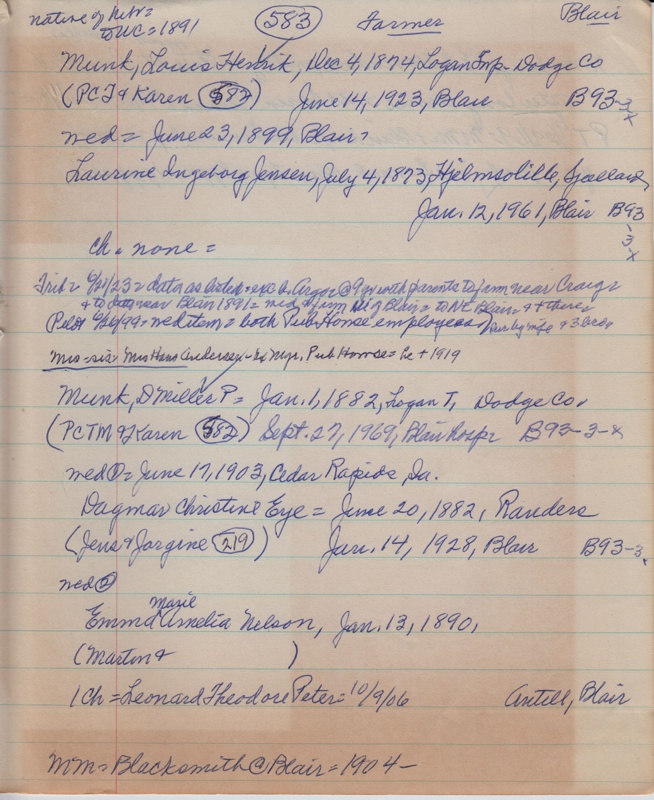 native of Nebr =
to WC = 1891
583
Farmer
Blair
Munk, Louis Henrik, Dec 4, 1874, Logan Twp. Dodge Co
(PCT & Karen 582) June 14, 1923, Blair B93-3-x
wed = June 23, 1899, Blair?
Laurine Ingeborg Jensen, July 4, 1873, Hjelmsolille, Sjælland
Jan. 12, 1961, Blair B93-3-x
ch = none =
Trib = 6/21/23 = data as listed = exc b. @ 9 yr with parents to farm near Craig =
& to near Blair 1891 = wed = farm of Blair = to NE Blair = & there
Pilot 6/26/99 = wed item = both Pub Home employees / Sur by wife & 3 bros
Mrs = sis = Mrs Hans Andersen = Ex Mgr. Pub Home = 1919
Munk, D Miller P = Jan. 1, 1882, Logan T, Dodge Co.
(PCTM & Karen 582) Sept. 27, 1969, Blair Hosp = B93-3-x
wed ① = June 17, 1903, Cedar Rapids, Ia.
Dagmar Christine Eye = June 20, 1882, Randers
(Jens & Jorgine 219) Jan. 14, 1928, Blair B93-3
wed ②
Marie
Emma Amelia Nelson, Jan. 13, 1890,
(Martin & )
1 Ch = Leonard Theodore Peter = 10/9/06 Blair
MM = Blacksmith @ Blair = 1904 -